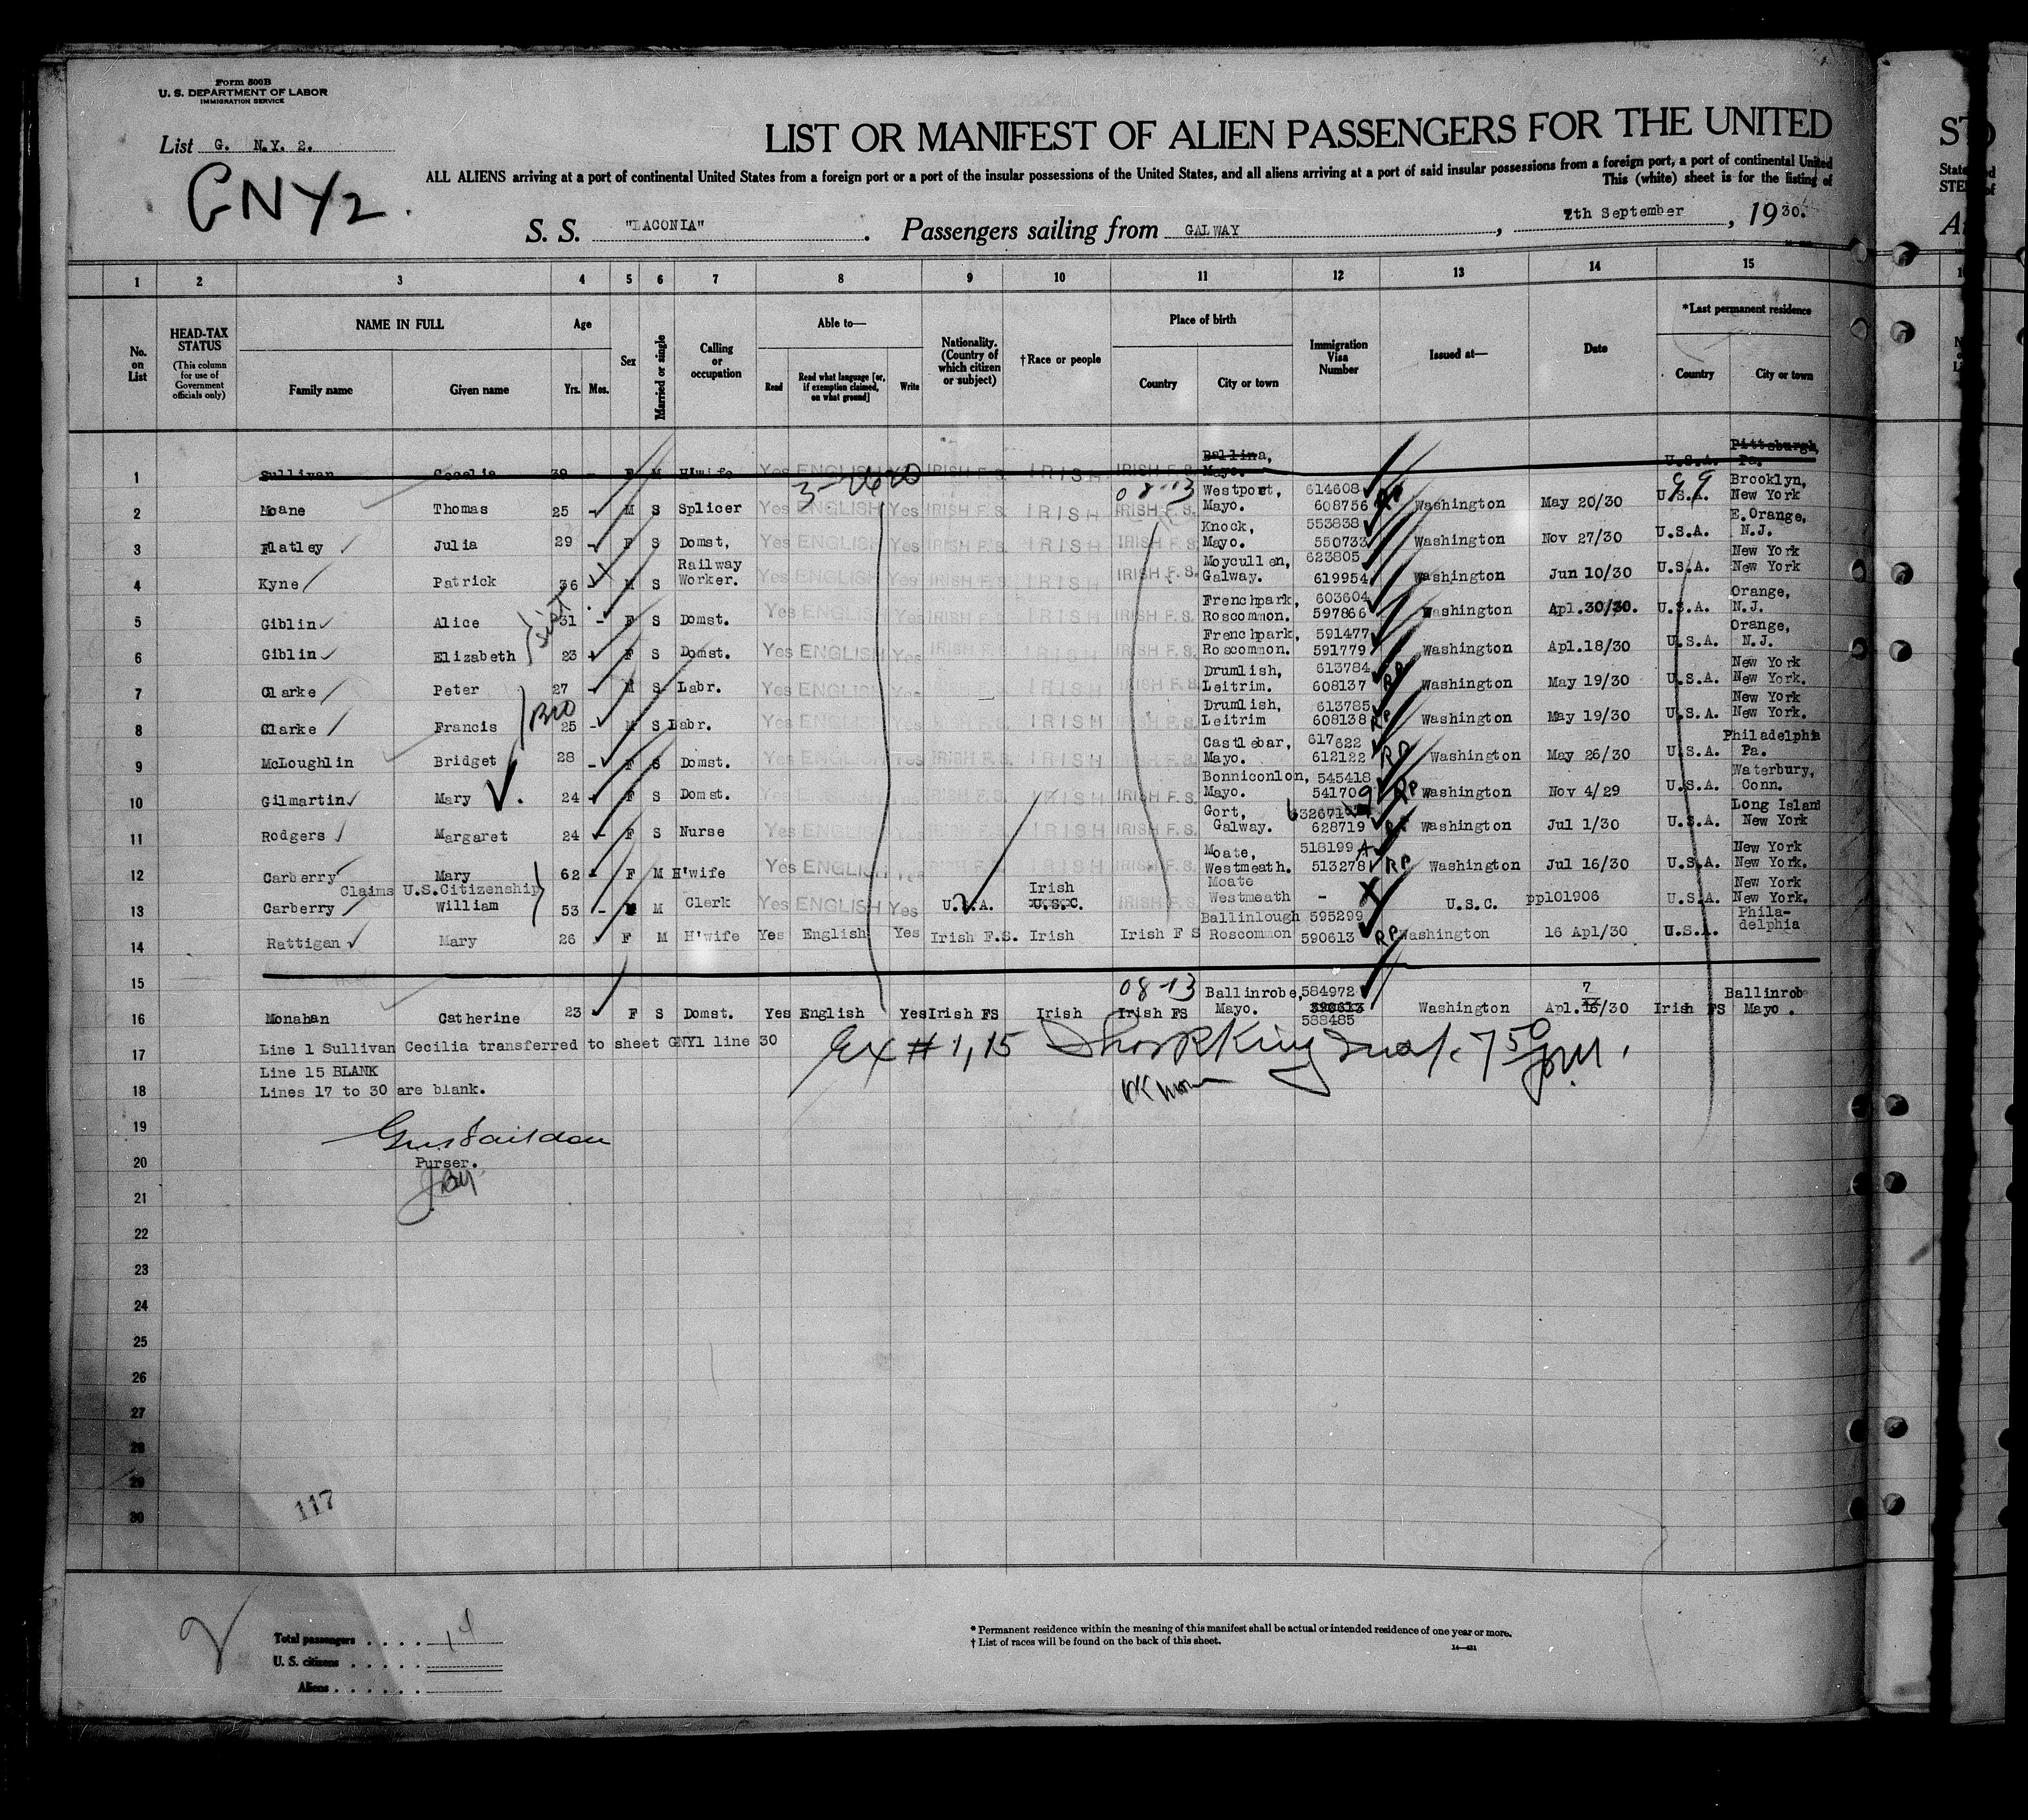 Form 500B
U. S. DEPARTMENT OF LABOR
IMMIGRATION SERVICE
List G. N.Y. 2.
GNY2.
LIST OR MANIFEST OF ALIEN PASSENGERS FOR THE UNITED
ALL ALIENS arriving at a port of continental United States from a foreign port or a port of the insular possessions of the United States, and all aliens arriving at a port of said insular possessions from a foreign port, a port of continental United
This (white) sheet is for the listing of
S. S. "LACONIA". Passengers sailing from GALWAY, 7th September, 1930.
1 2 3 4 5 6 7 8 9 10 11 12 13 14 15
No. on List
HEAD-TAX STATUS (This column for use of Government officials only)
NAME IN FULL Family name Given name
Age Yrs. Mos.
Sex
Married or single
Calling or occupation
Able to— Read Read what language [or, if exemption claimed, on what ground] Write
Nationality. (Country of which citizen or subject)
†Race or people
Place of birth Country City or town
Immigration Visa Number
Issued at—
Date
*Last permanent residence Country City or town
1 Sullivan Cecelia 39 - F M H'wife Yes ENGLISH Yes IRISH F.S. IRISH IRISH F.S. Ballina, Mayo. U.S.A. Pittsburgh, Pa.
08-13 99
2 Moane Thomas 25 - M S Splicer Yes ENGLISH Yes IRISH F.S. IRISH IRISH F.S. Westport, Mayo. 614608 608756 RP Washington May 20/30 U.S.A. Brooklyn, New York
3 Flatley Julia 29 - F S Domst, Yes ENGLISH Yes IRISH F.S. IRISH IRISH F.S. Knock, Mayo. 553838 550733 Washington Nov 27/30 U.S.A. E.Orange, N.J.
4 Kyne Patrick 36 M S Railway Worker. Yes ENGLISH Yes IRISH F.S. IRISH IRISH F.S. Moycullen, Galway. 623805 619954 Washington Jun 10/30 U.S.A. New York New York
5 Giblin Alice 31 - F S Domst. Yes ENGLISH Yes IRISH F.S. IRISH IRISH F.S. Frenchpark, Roscommon. 603604 597866 Washington Apl.30/30. U.S.A. Orange, N.J.
6 Giblin Elizabeth 23 F S Domst. Yes ENGLISH Yes IRISH F.S. IRISH IRISH F.S. Frenchpark, Roscommon. 591477 591779 Washington Apl.18/30 U.S.A. Orange, N.J.
7 Clarke Peter 27 - M S Labr. Yes ENGLISH Yes IRISH IRISH F.S. Drumlish, Leitrim. 613784 608137 RP Washington May 19/30 U.S.A. New York New York.
Bro
8 Clarke Francis 25 - M S Labr. Yes ENGLISH Yes IRISH IRISH F.S. Drumlish, Leitrim 613785 608138 RP Washington May 19/30 U.S.A. New York New York.
9 McLoughlin Bridget 28 - F S Domst. Yes ENGLISH Yes IRISH F.S. IRISH IRISH F.S. Castlebar, Mayo. 617622 612122 RP Washington May 26/30 U.S.A. Philadelphia Pa.
10 Gilmartin Mary 24 F S Domst. Yes ENGLISH Yes IRISH F.S. IRISH IRISH F.S. Bonniconlon, Mayo. 545418 541709 RP Washington Nov 4/29 U.S.A. Waterbury, Conn.
11 Rodgers Margaret 24 - F S Nurse Yes ENGLISH Yes IRISH F.S. IRISH IRISH F.S. Gort, Galway. 632671 628719 Washington Jul 1/30 U.S.A. Long Island New York
12 Carberry Mary 62 F M H'wife Yes ENGLISH Yes IRISH F.S. IRISH IRISH F.S. Moate, Westmeath. 518199 513278 RP Washington Jul 16/30 U.S.A. New York New York.
Claims U.S.Citizenship
13 Carberry William 53 - M M Clerk Yes ENGLISH Yes U.S.A. Irish U.S.C. IRISH F.S. Moate Westmeath - X U.S.C. pp101906 U.S.A. New York New York.
14 Rattigan Mary 26 F M H'wife Yes English Yes Irish F.S. Irish Irish F S Ballinlough Roscommon 595299 590613 RP Washington 16 Apl/30 U.S.A. Phila-delphia
15
08-13
16 Monahan Catherine 23 F S Domst. Yes English Yes Irish FS Irish Irish FS Ballinrobe, Mayo. 584972 590613 588485 Washington Apl. 7 16/30 Irish FS Ballinrob Mayo.
17 Line 1 Sullivan Cecilia transferred to sheet GNY1 line 30
Line 15 BLANK
18 Lines 17 to 30 are blank.
Ex # 1, 15
19
20 Purser.
21
22
23
24
25
26
27
28
29
30
117
Total passengers . . . . 14
U. S. citizens . . . . .
Aliens . . . . . .
* Permanent residence within the meaning of this manifest shall be actual or intended residence of one year or more.
† List of races will be found on the back of this sheet.
14—421